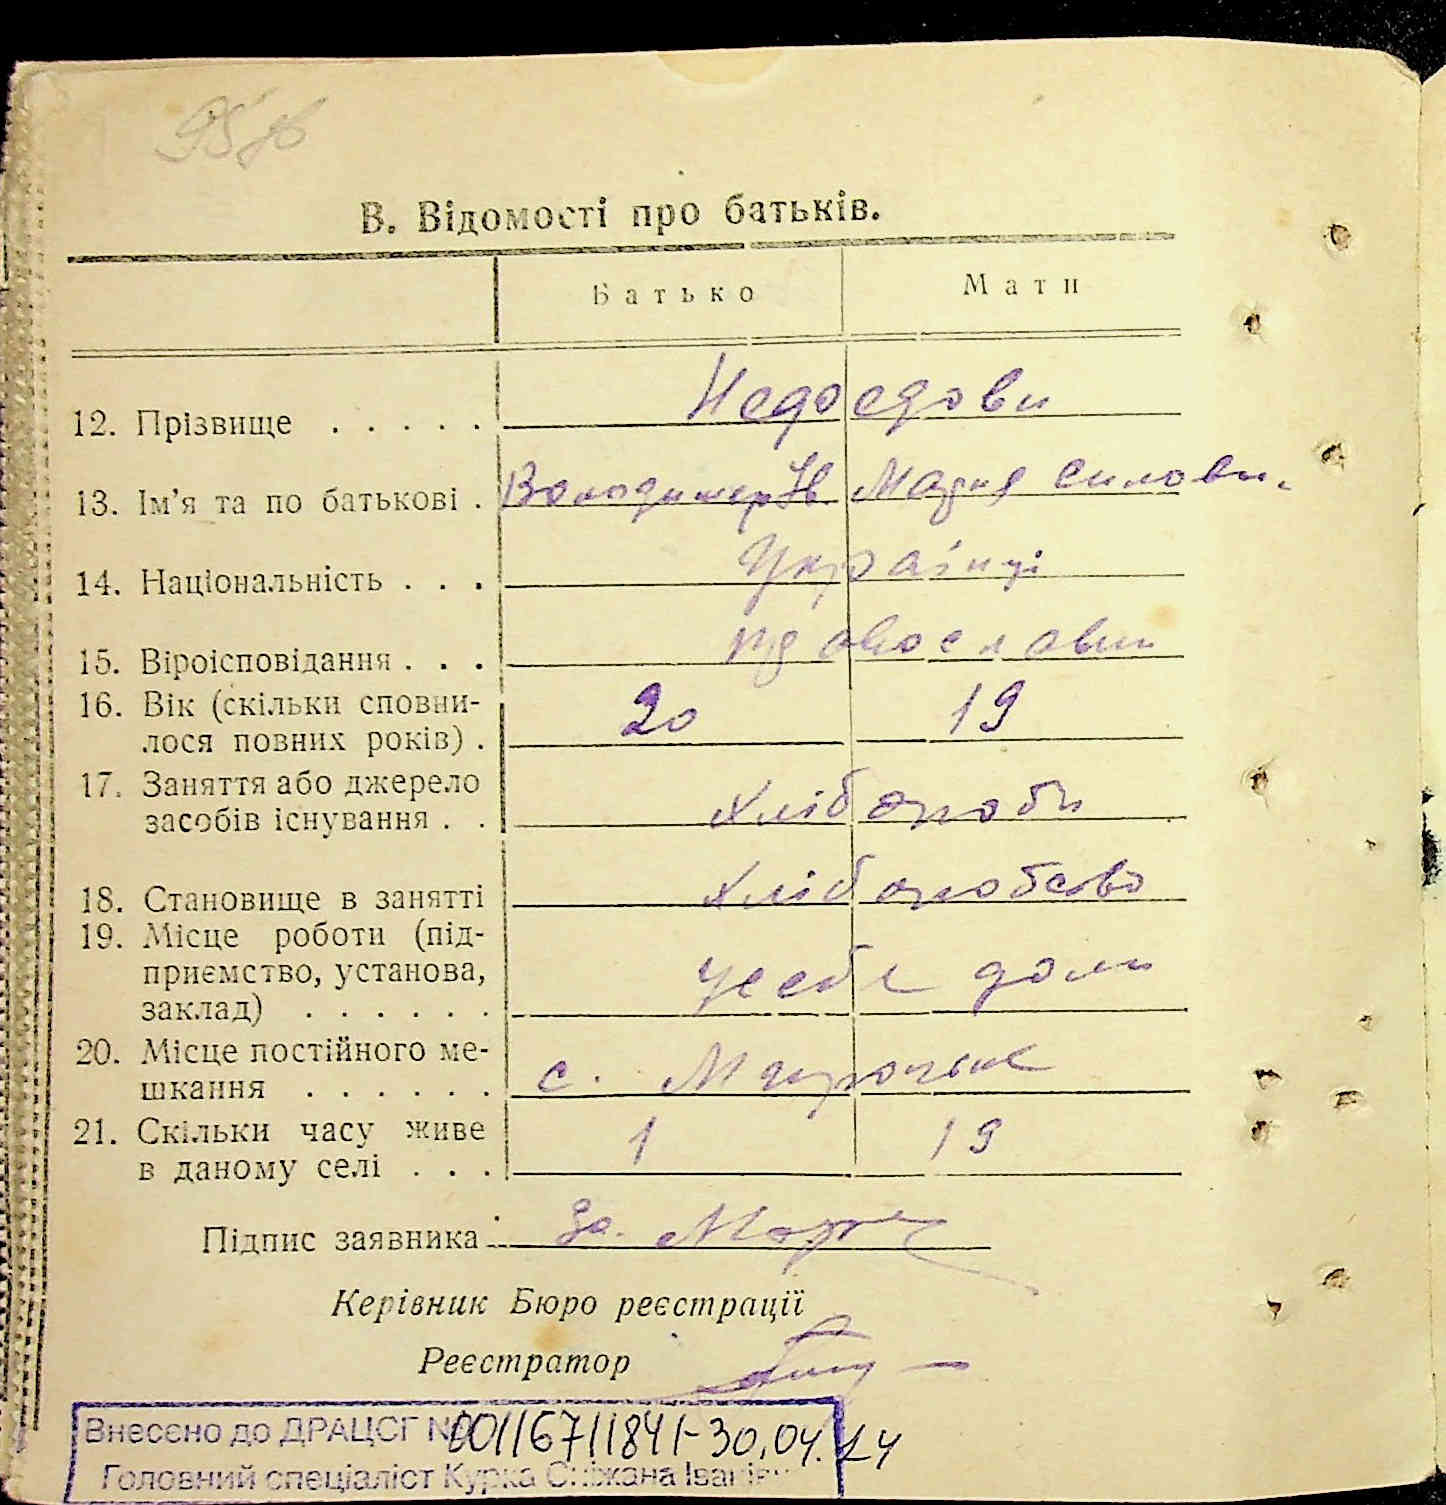 В. Відомості про батьків.
Батько Мати
12. Прізвище . . . . . Недоедови
13. Ім'я та по батькові . Володимер Ів Мария Силови.
14. Національність . . . Українці
15. Віроісповідання . . . православн
16. Вік (скільки сповни-
лося повних років) . 20 19
17. Заняття або джерело
засобів існування . . хліборобн
18. Становище в занятті хліборобство
19. Місце роботи (під-
приємство, установа,
заклад) . . . . . . у себе дома
20. Місце постійного ме-
шкання . . . . . . с.
21. Скільки часу живе
в даному селі . . . 1 19
Підпис заявника за.
Керівник Бюро реєстрації
Реєстратор
Внесено до ДРАЦСГ № 00116711841-30.04.24
Головний спеціаліст Курка Сніжана Іванівна